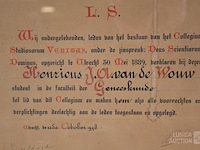 L. S.
Wij ondergeteekenden, leden van het bestuur van het Collegium
Studiosorum VERITAS, onder de zinspreuk: Deus Scientiarum
Dominus, opgericht te Utrecht 30 Mei 1889, verklaren bij dezen
Henricus J. A. van de Wouw
student in de faculteit der Geneeskunde
tot lid van dit Collegium en maken hem alle voorrechten en
verplichtingen deelachtig aan de leden toegestaan en opgelegd.
Utrecht October
LUNICA
AUCTION